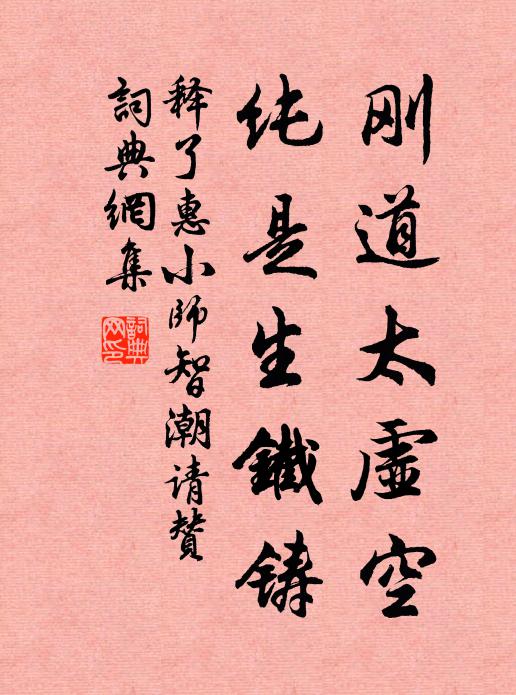 刚道太虚空
纯是生鐵铸
释了惠小师智潮请赞
詞典網集
詞典网印